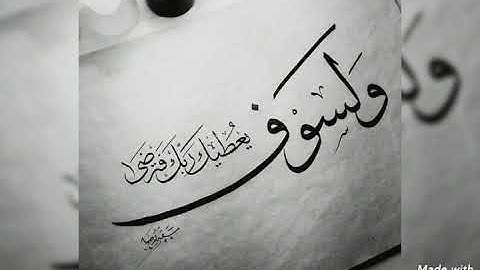 وَلَسَوْفَ
يُعْطِيكَ رَبُّكَ فَتَرْضَى
Made with